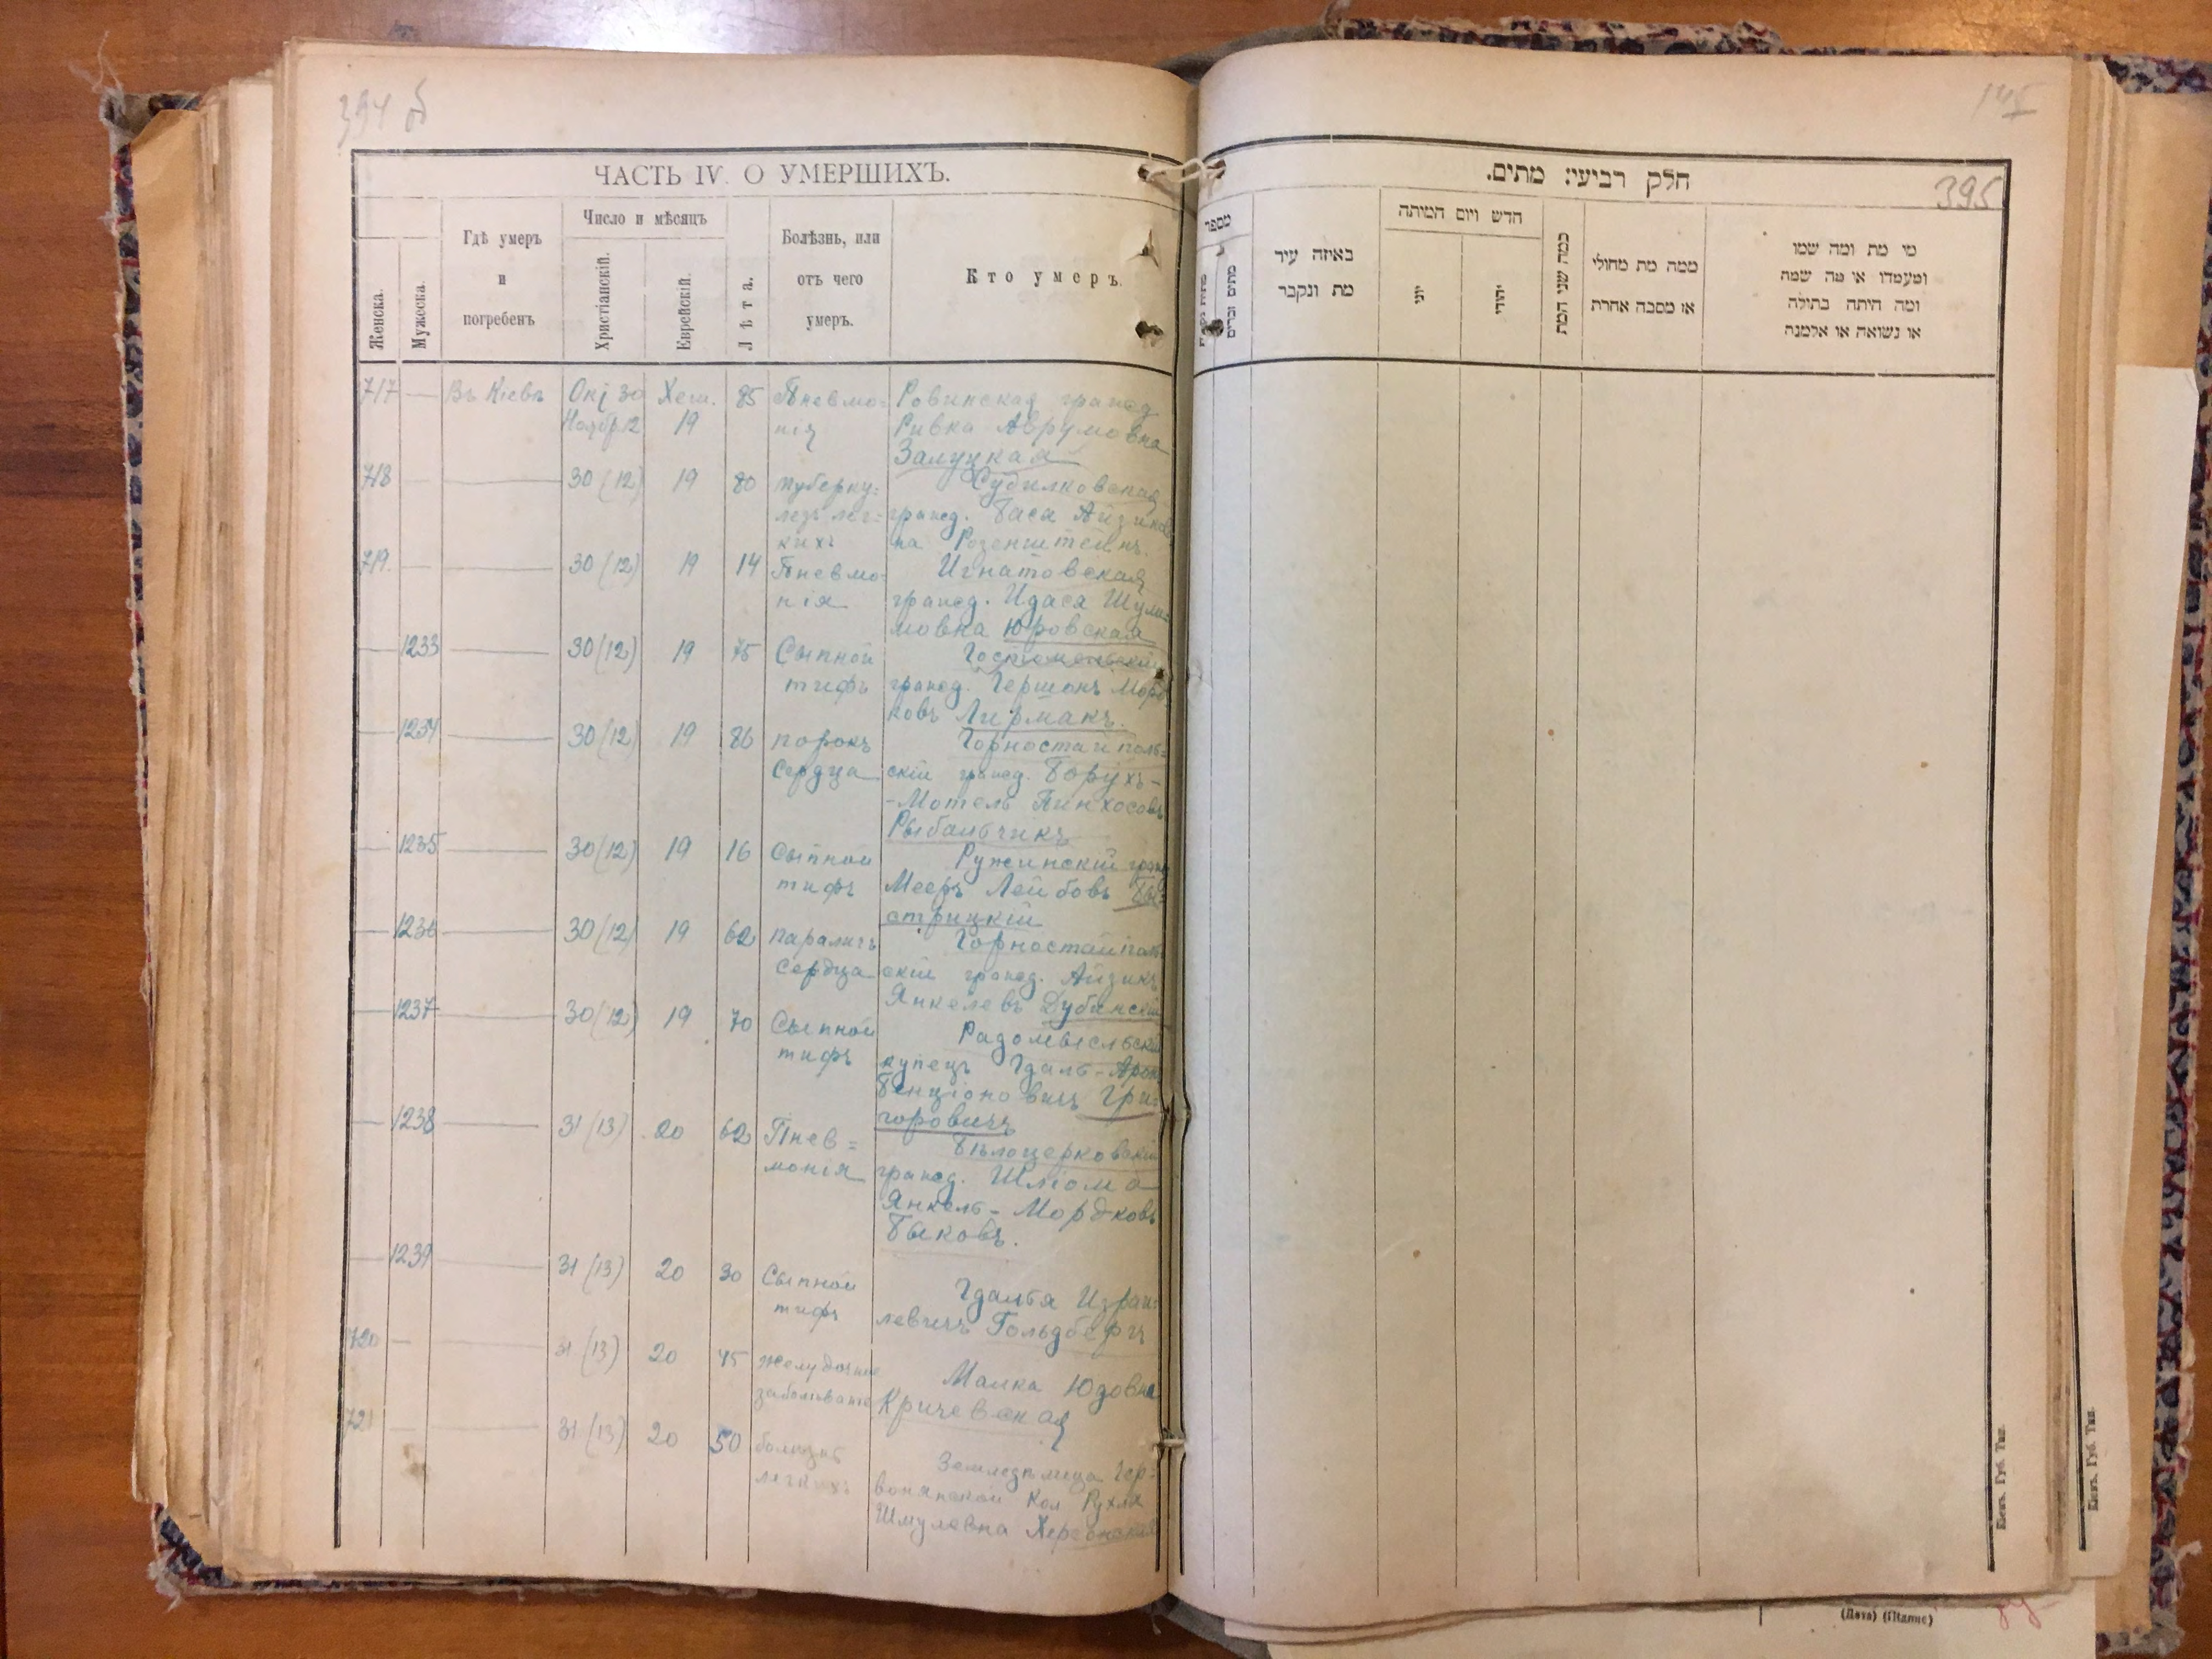 394 б
ЧАСТЬ IV. О УМЕРШИХЪ.
Женска.
Мужеска.
Гдѣ умеръ
и
погребенъ
Число и мѣсяцъ
Христіанскій.
Еврейскій.
Лѣта.
Болѣзнь, или
отъ чего
умеръ.
Кто умеръ.
717 — Въ Кіевѣ Окт 30 Хеш. 85 Пневмо= Ровинская гражд
Ноябр 12 19 нія Ривка Аврумовна
Залуцкая
718 — 30 (12) 19 80 туберку= Судилковская
лезъ лег= гражд. Бася Айзиков
кихъ на Розенштейнъ.
719. — 30 (12) 19 14 Пневмо= Игнатовская
нія гражд. Идася Шули=
мовна Юровская
— 1233 30 (12) 19 75 Сыпной Гостомельскій
тифъ гражд. Гершонъ Мордковъ Лирмакъ.
— 1234 30 (12) 19 86 порокъ Горностайполь=
сердца скій гражд. Борухъ-
-Мотель Пинхосовъ
Рыбальчикъ
— 1235 30 (12) 19 16 Сыпной Ружинскій гражд
тифъ Мееръ Лейбовъ Бы=
стрицкій
— 1236 30 (12) 19 62 параличъ Горностайполь
сердца скій гражд. Айзикъ
Янкелевъ Дубинскій
— 1237 30 (12) 19 70 Сыпной Радомысльскій
тифъ купецъ Гдаль-Аронъ
Бенціоновичъ Гри=
горовичъ
— 1238 31 (13) 20 62 Пнев= Бѣлоцерковскій
монія гражд. Шліома
Янкель-Мордковъ
Быковъ.
— 1239 31 (13) 20 30 Сыпной Гдалья Израи=
тифъ левичъ Гольдбергъ
720 — 31 (13) 20 45 желудочное Малка Юдовна
Кричевская
721 — 31 (13) 20 50 Земледѣлица
легкихъ Кол Рухля
Шмулевна
395
חלק רביעי: מתים.
מספר
מתים זכרים
באיזה עיר
מת ונקבר
חדש ויום המיתה
יוני
יהודי
כמה שני המת
ממה מת מחולי
או מסבה אחרת
מי מת ומה שמו
ומעמדו או מה שמה
ומה היתה בתולה
או נשואה או אלמנה
Кіевъ. Губ. Тип.
Кіевъ. Губ. Тип.